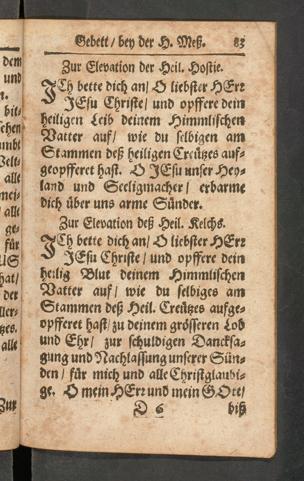 Gebett / bey der H. Meß. 83
Zur Elevation der Heil. Hostie.
JCh bette dich an / O liebster HErr
JEsu Christe / und opffere dein
heiligen Leib deinem Himmlischen
Vatter auf / wie du selbigen am
Stammen deß heiligen Creutzes auf-
geopfferet hast. O JEsu unser Hey-
land und Seeligmacher / erbarme
dich über uns arme Sünder.
Zur Elevation deß Heil. Kelchs.
JCh bette dich an / O liebster HErr
JEsu Christe / und opffere dein
heilig Blut deinem Himmlischen
Vatter auf / wie du selbiges am
Stammen deß Heil. Creutzes aufge-
opfferet hast / zu deinem grösseren Lob
und Ehr / zur schuldigen Dancksa-
gung und Nachlassung unserer Sün-
den / für mich und alle Christglaubi-
ge. O mein HErr und mein GOtt /
D 6 biß
dem
und
bit-
alle
mei-
alle
ge
für
hat /
der
alle
Zur